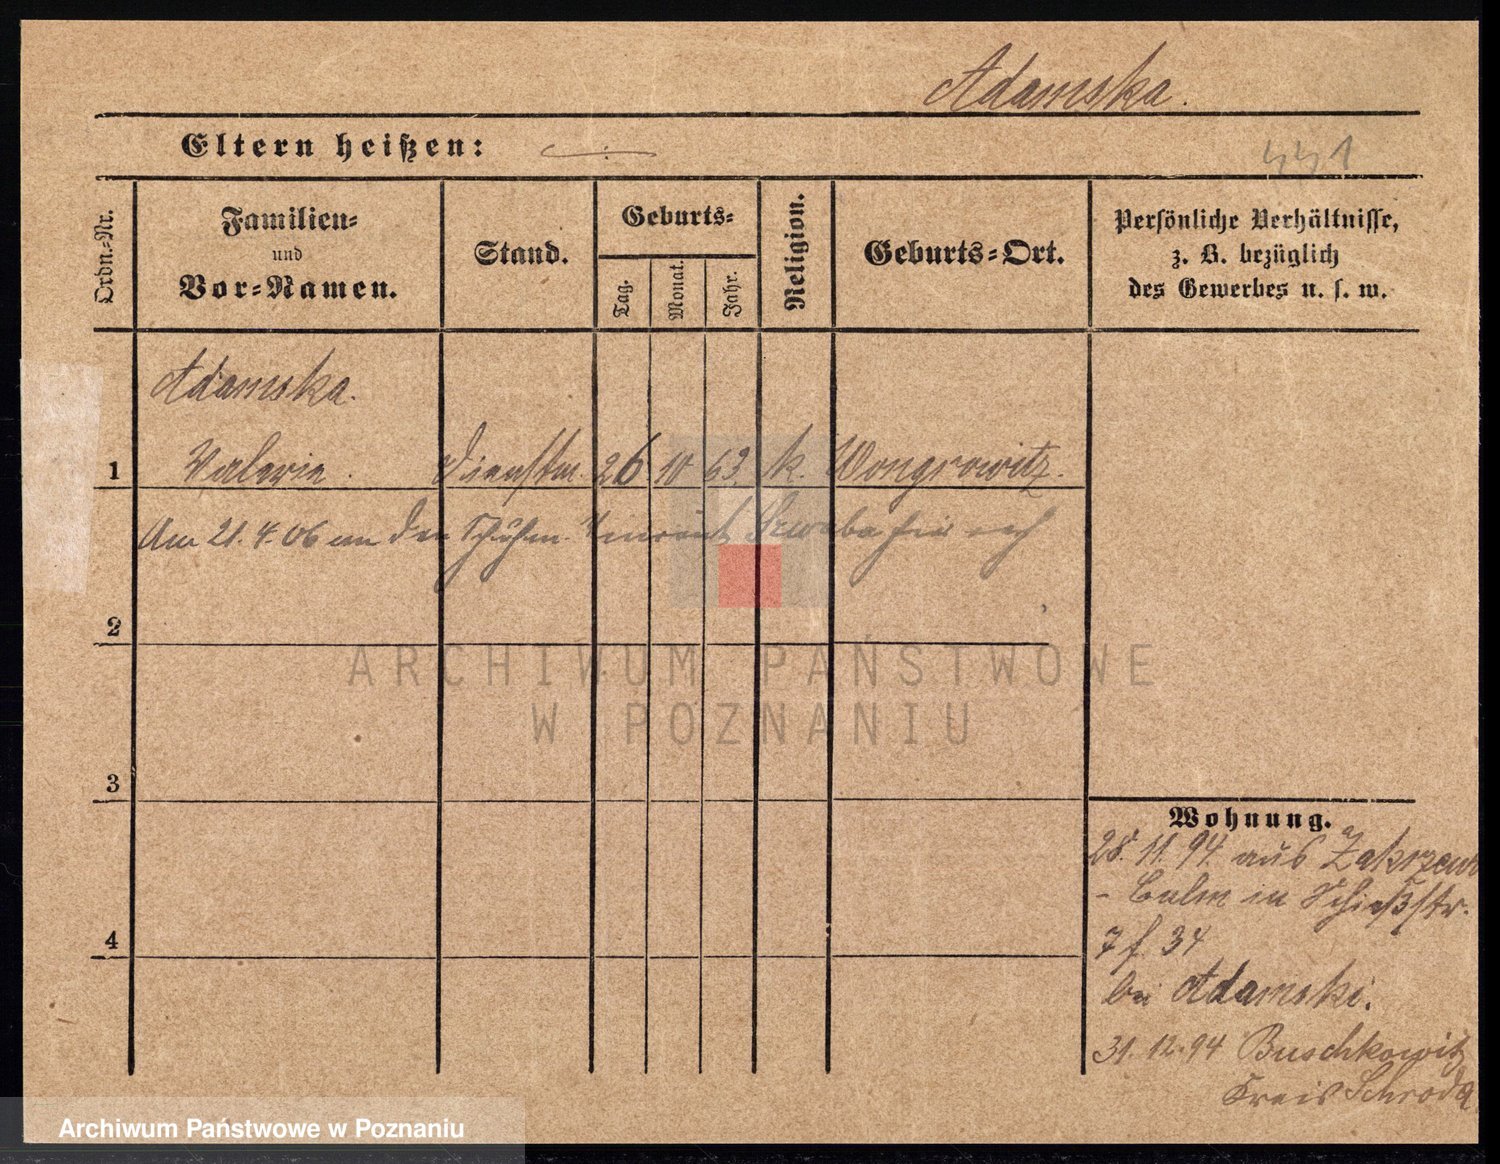 Adamska.
Eltern heißen: —
Ordn.-Nr.
Familien-
und
Vor-Namen.
Stand.
Geburts-
Tag.
Monat.
Jahr.
Religion.
Geburts-Ort.
Persönliche Verhältnisse,
z. B. bezüglich
des Gewerbes u. s. w.
Adamska.
1 Valerie. Dienstm. 26 10 63. k. Wongrowitz.
Am 21.4.06 an den Schuhm. Szwaba
2
3
4
Wohnung.
28. 11. 94. aus Zakrzewo
- Culm in Schießstr.
7 f 34
bei Adamski.
31. 12. 94 Buschkowitz
Kreis Schroda
ARCHIWUM PAŃSTWOWE
W POZNANIU
Archiwum Państwowe w Poznaniu